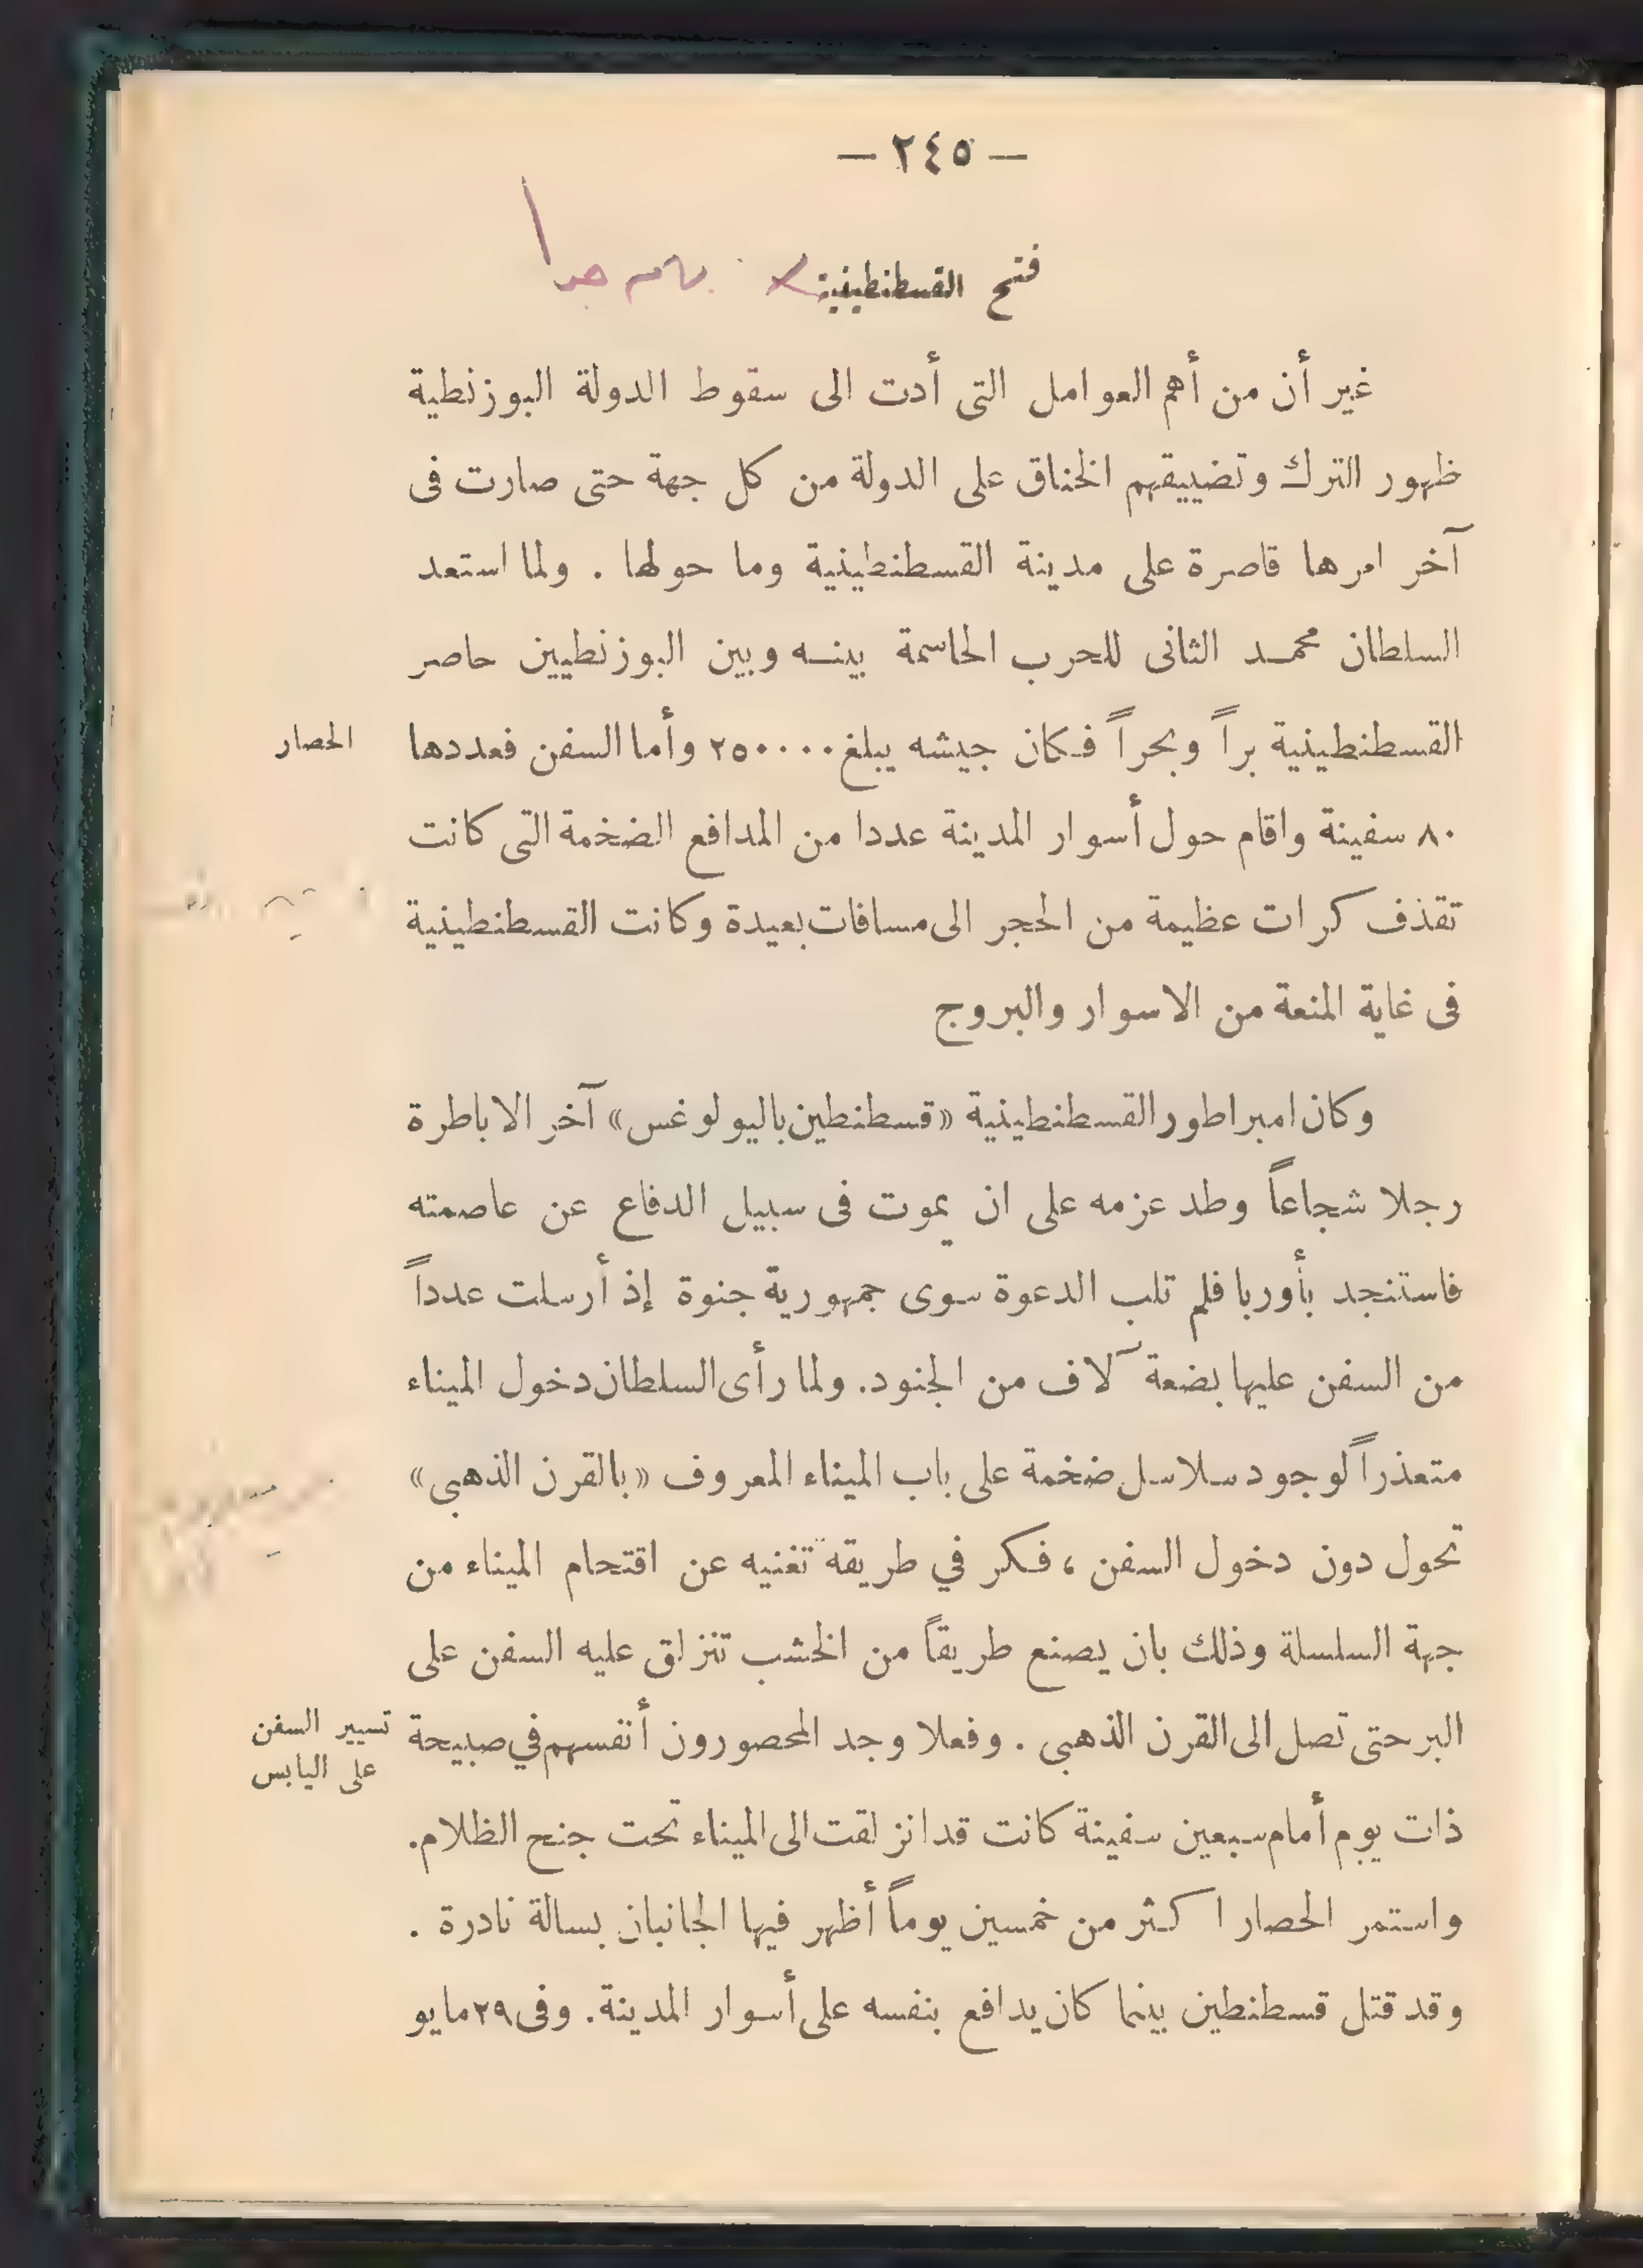 — ٢٤٥ —
فتح القسطنطينية
غير أن من أهم العوامل التى أدت الى سقوط الدولة البوزنطية
ظهور الترك وتضييقهم الخناق على الدولة من كل جهة حتى صارت فى
آخر امرها قاصرة على مدينة القسطنطينية وما حولها . ولما استعد
السلطان محمد الثانى للحرب الحاسمة بينه وبين البوزنطيين حاصر
القسطنطينية براً وبحراً فكان جيشه يبلغ ٢٥٠٠٠٠ وأما السفن فعددها
الحصار
٨٠ سفينة واقام حول أسوار المدينة عددا من المدافع الضخمة التى كانت
تقذف كرات عظيمة من الحجر الى مسافات بعيدة وكانت القسطنطينية
فى غاية المنعة من الاسوار والبروج
وكان امبراطور القسطنطينية «قسطنطين باليولوغس» آخر الاباطرة
رجلا شجاعاً وطد عزمه على ان يموت فى سبيل الدفاع عن عاصمته
فاستنجد بأوربا فلم تلب الدعوة سوى جمهورية جنوة إذ أرسلت عدداً
من السفن عليها بضعة آلاف من الجنود. ولما رأى السلطان دخول الميناء
متعذراً لوجود سلاسل ضخمة على باب الميناء المعروف «بالقرن الذهبى»
تحول دون دخول السفن ، فكر في طريقة تغنيه عن اقتحام الميناء من
جهة السلسلة وذلك بان يصنع طريقاً من الخشب تنزلق عليه السفن على
البر حتى تصل الى القرن الذهبى . وفعلا وجد المحصورون أنفسهم في صبيحة
تسيير السفن
على اليابس
ذات يوم أمام سبعين سفينة كانت قد انزلقت الى الميناء تحت جنح الظلام.
واستمر الحصار اكثر من خمسين يوماً أظهر فيها الجانبان بسالة نادرة .
وقد قتل قسطنطين بينما كان يدافع بنفسه على أسوار المدينة. وفى ٢٩ مايو